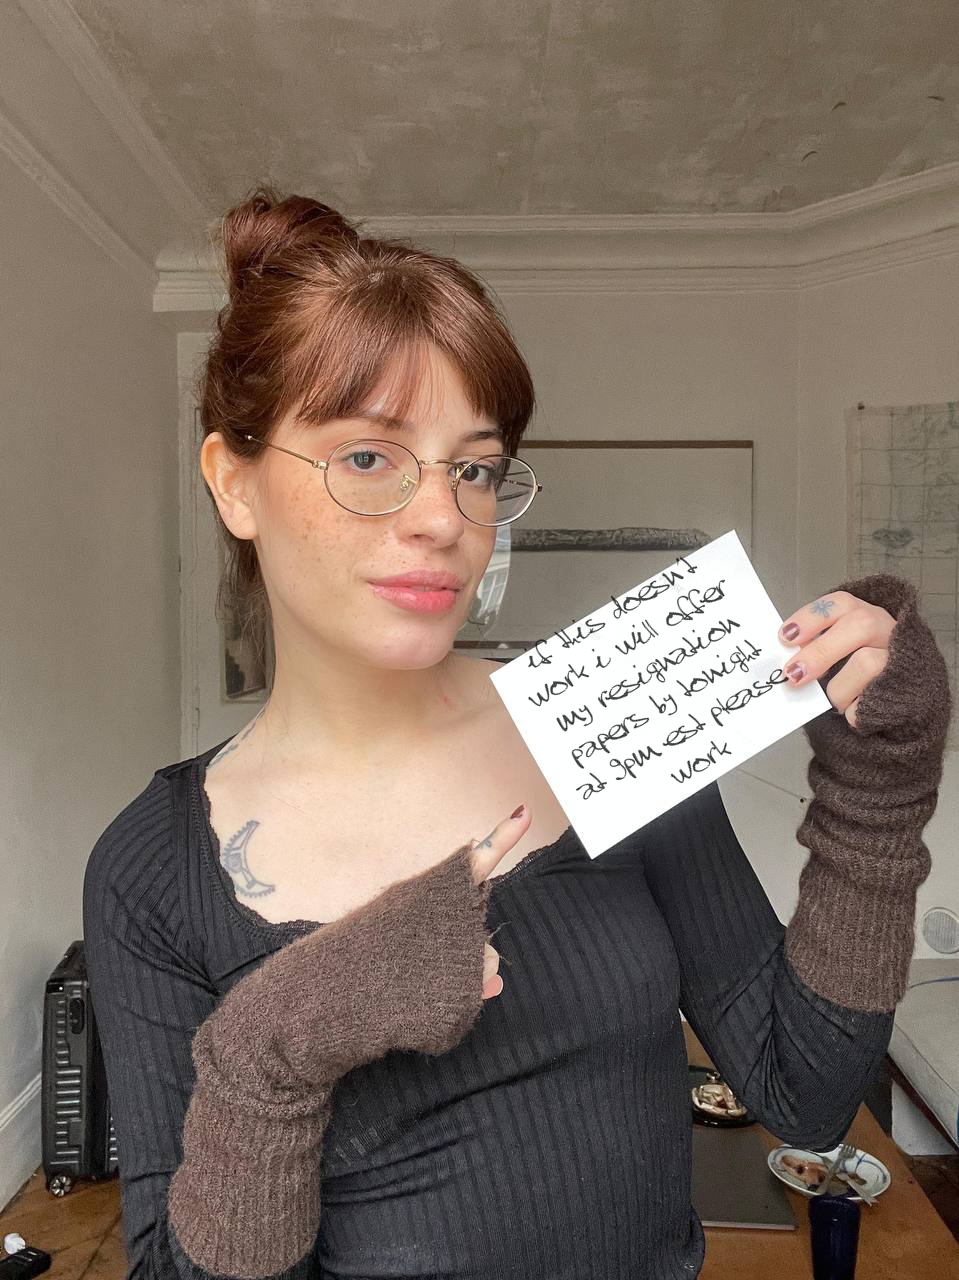 if this doesn't
work i will offer
my resignation
papers by tonight
at 9pm est please
work